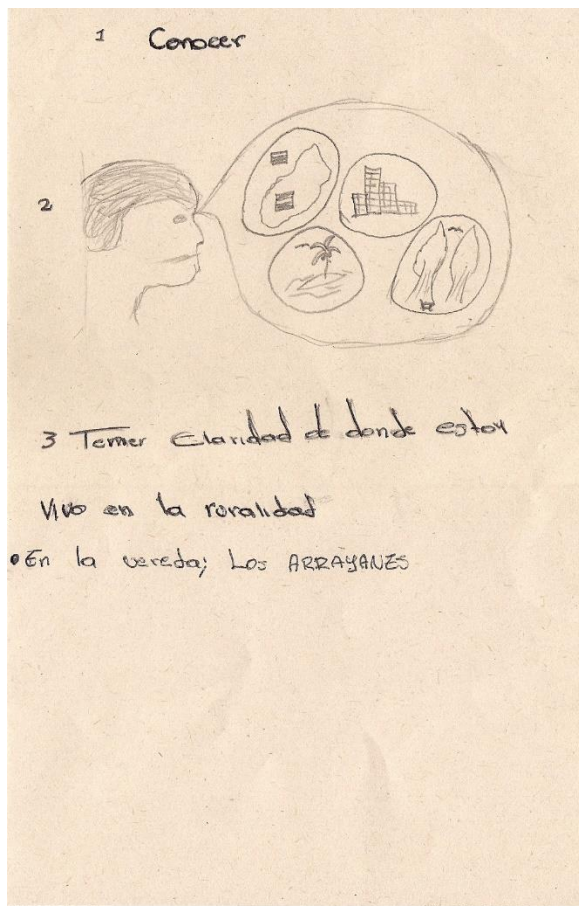 1 Conocer
2
3 Terner Claridad de donde estoy
Vivo en la ruralidad
• En la vereda; Los ARRAYANES